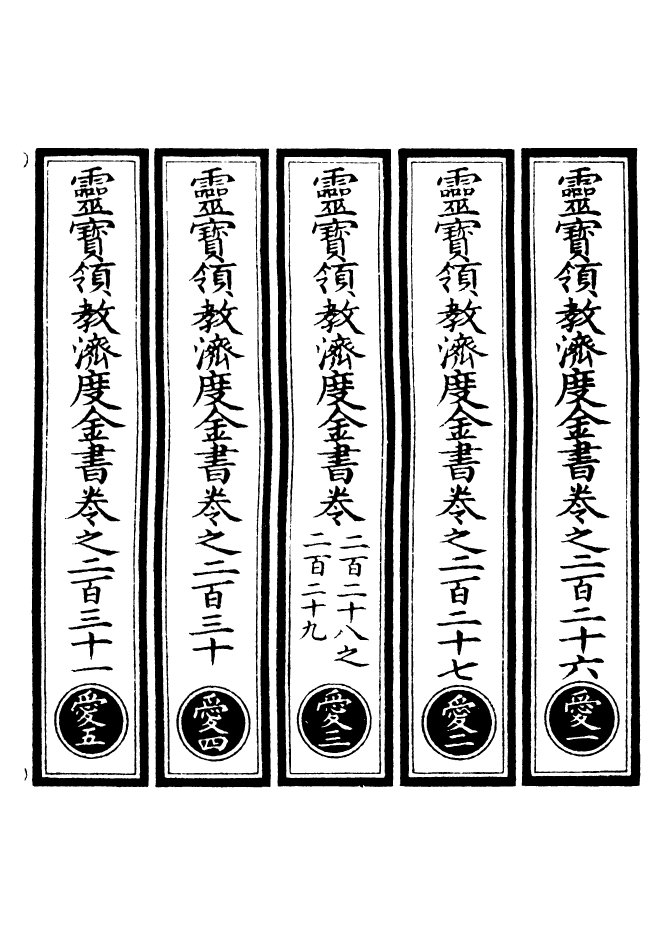 靈寶領教濟度金書卷之二百二十六
愛一
靈寶領教濟度金書卷之二百二十七
愛二
靈寶領教濟度金書卷
二百二十八之
二百二十九
愛三
靈寶領教濟度金書卷之二百三十
愛四
靈寶領教濟度金書卷之二百三十一
愛五